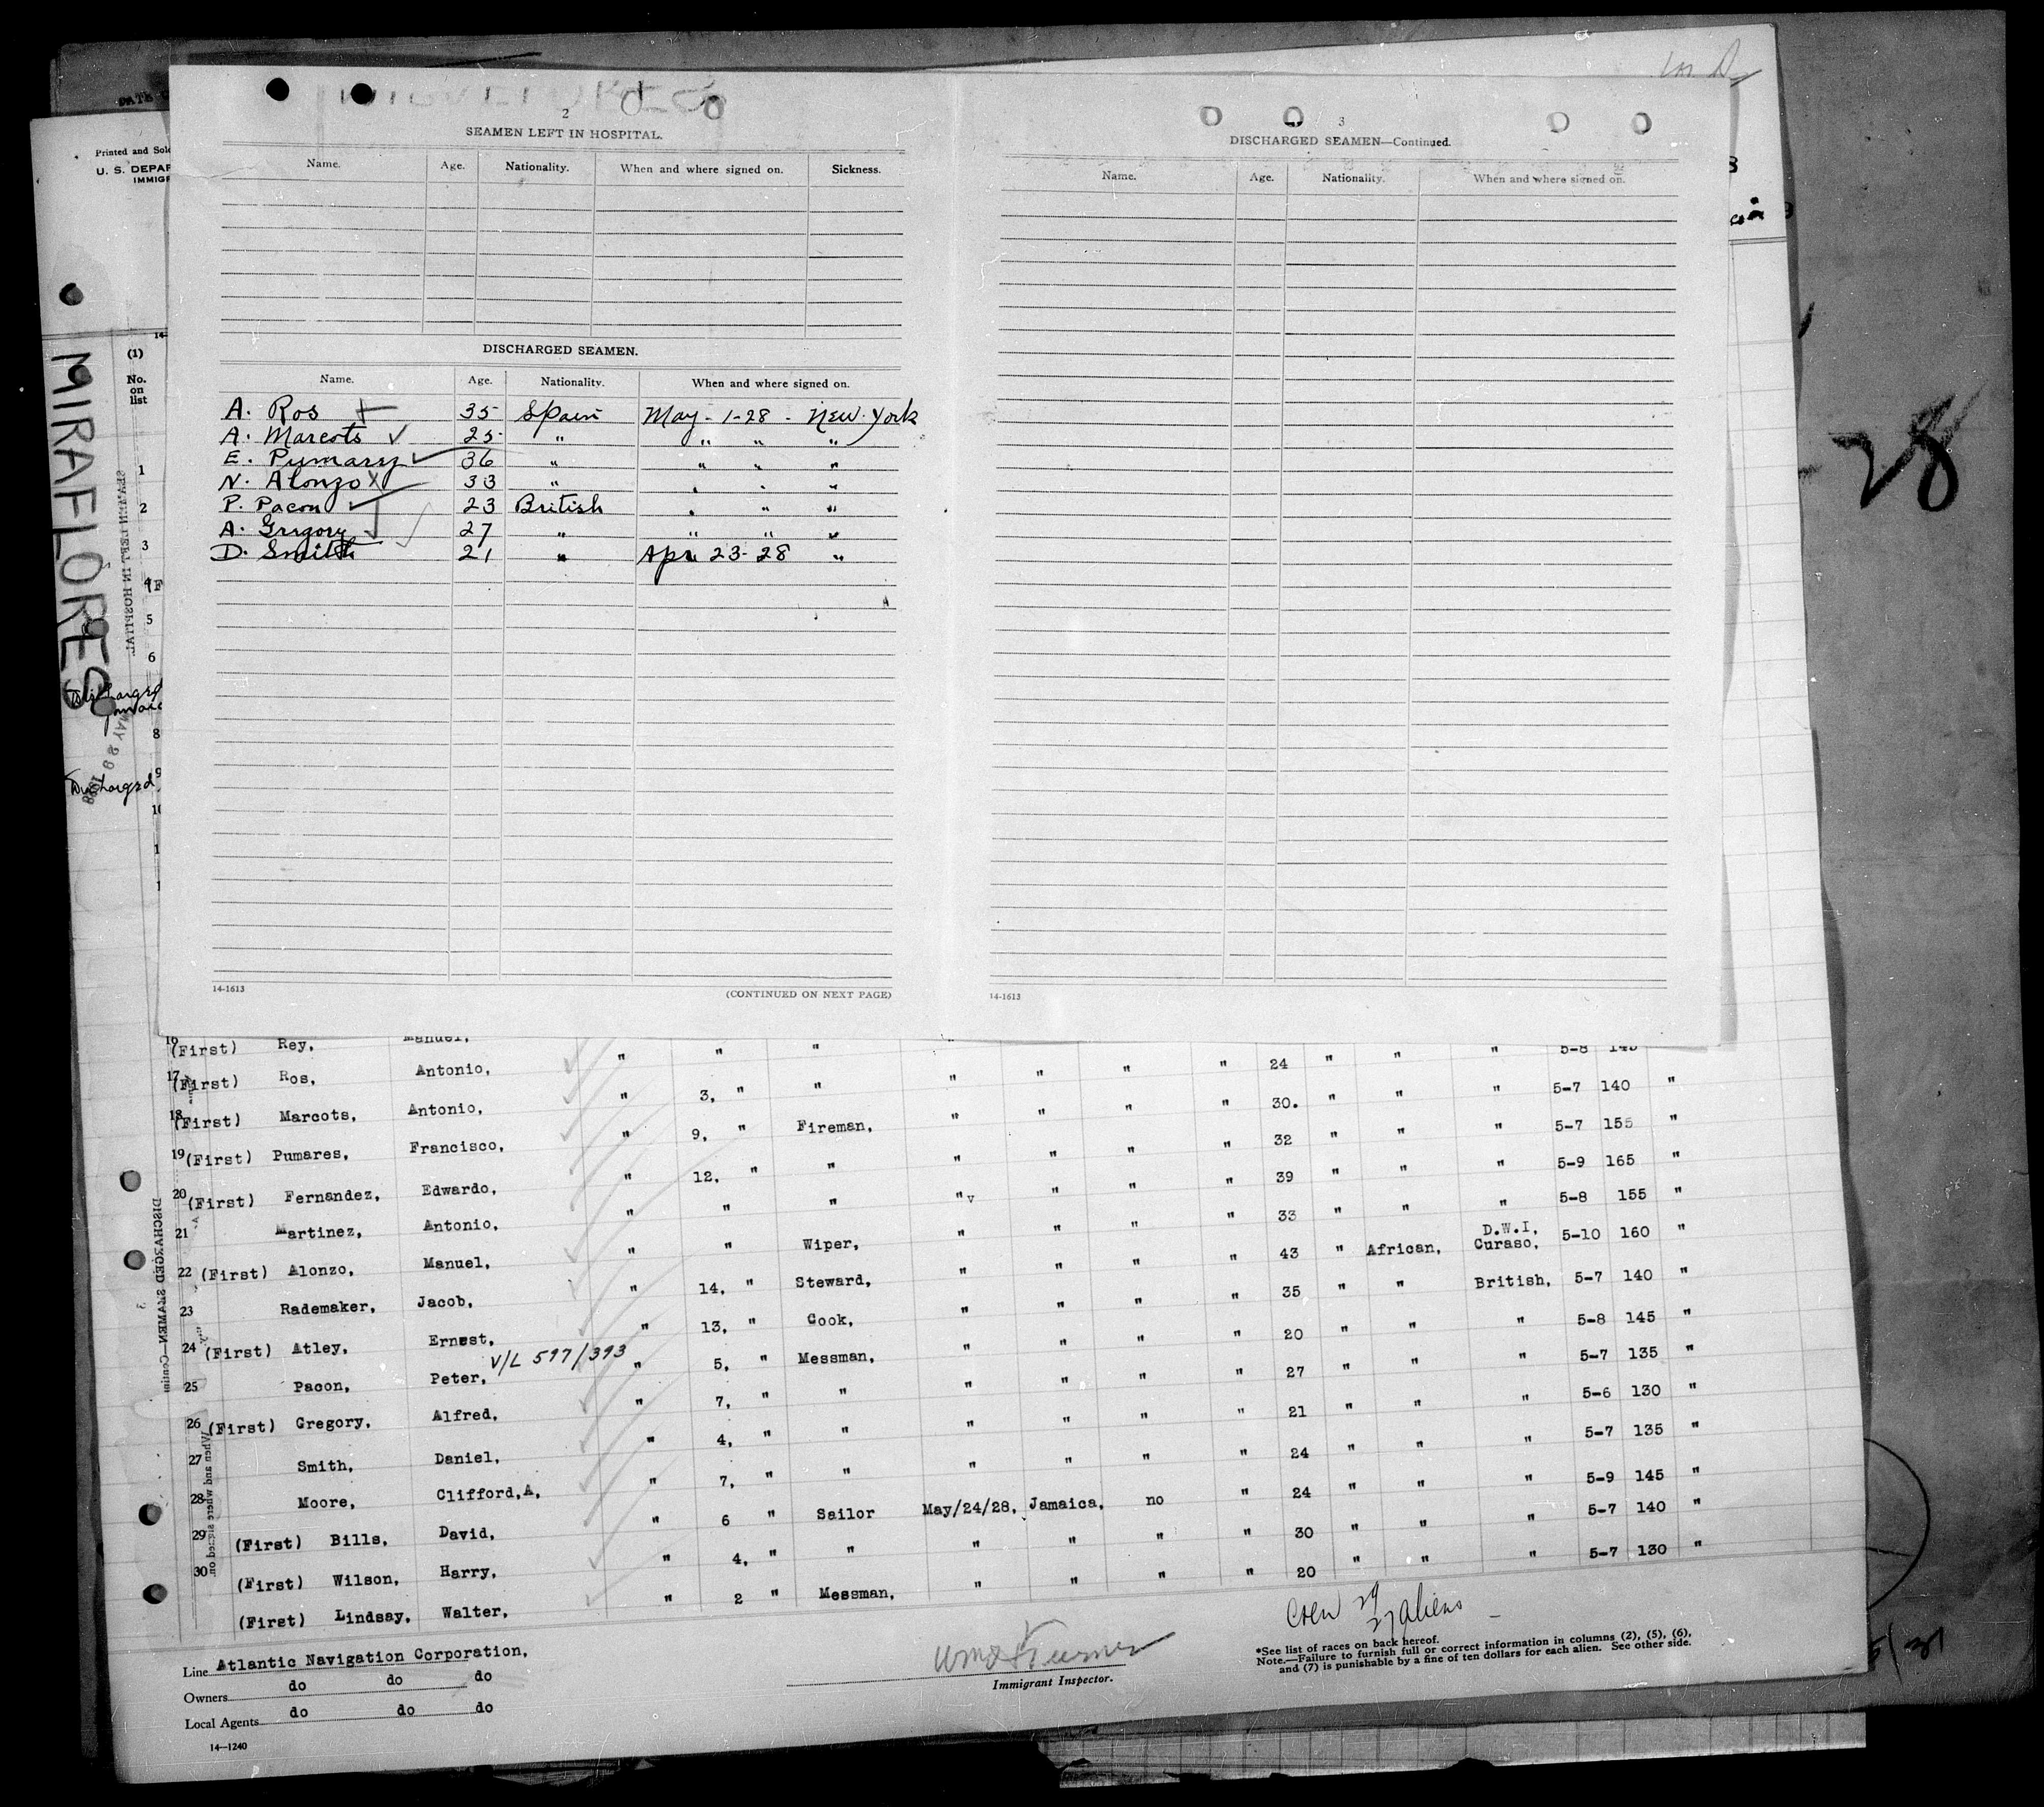 2
SEAMEN LEFT IN HOSPITAL.
Name. Age. Nationality. When and where signed on. Sickness.
DISCHARGED SEAMEN.
Name. Age. Nationality. When and where signed on.
A. Ros 35 Spain May-1-28 - New York
A. Marcots 25 " " " "
E. Pumares 36 " " " "
N. Alonzo 33 " " " "
P. Pacon 23 British " " "
A. Gregory 27 " " " "
D. Smith 21 " Apr. 23-28 "
14-1613
(CONTINUED ON NEXT PAGE)
3
DISCHARGED SEAMEN—Continued.
Name. Age. Nationality. When and where signed on.
14-1613
Printed and Sol
U. S. DEPAR
IMMIGR
(1)
No.
on
list
1
2
3
4
5
6
8
9
MIRAFLORES
Discharged
Discharged
28
16 (First) Rey, Manuel, " " " " 5-8 145
17 (First) Ros, Antonio, " " " " " " 24 " " "
18 (First) Marcots, Antonio, " 3, " " " " " " 30. " " " 5-7 140 "
19 (First) Pumares, Francisco, " 9, " Fireman, " " " " 32 " " " 5-7 155 "
20 (First) Fernandez, Edwardo, " 12, " " " " " " 39 " " " 5-9 165 "
21 Martinez, Antonio, " " " "v " " " 33 " " " 5-8 155 "
22 (First) Alonzo, Manuel, " " Wiper, " " " " 43 " African, D.W.I, Curaso, 5-10 160 "
23 Rademaker, Jacob, " 14, " Steward, " " " " 35 " " British, 5-7 140 "
24 (First) Atley, Ernest, " 13, " Cook, " " " " 20 " " " 5-8 145 "
25 Pacon, Peter, V/L 597/393 " 5, " Messman, " " " " 27 " " " 5-7 135 "
26 (First) Gregory, Alfred, " 7, " " " " " " 21 " " " 5-6 130 "
27 Smith, Daniel, " 4, " " " " " " 24 " " " 5-7 135 "
28 Moore, Clifford,A, " 7, " " " " " " 24 " " " 5-9 145 "
29 (First) Bills, David, " 6 " Sailor May/24/28, Jamaica, no " 30 " " " 5-7 140 "
30 (First) Wilson, Harry, " 4, " " " " " " 20 " " " 5-7 130 "
(First) Lindsay, Walter, " 2 " Messman, " " " "
Crew 29
27 aliens
Line Atlantic Navigation Corporation,
Owners do do do
Local Agents do do do
14—1240
Immigrant Inspector.
*See list of races on back hereof.
Note.—Failure to furnish full or correct information in columns (2), (5), (6),
and (7) is punishable by a fine of ten dollars for each alien. See other side.